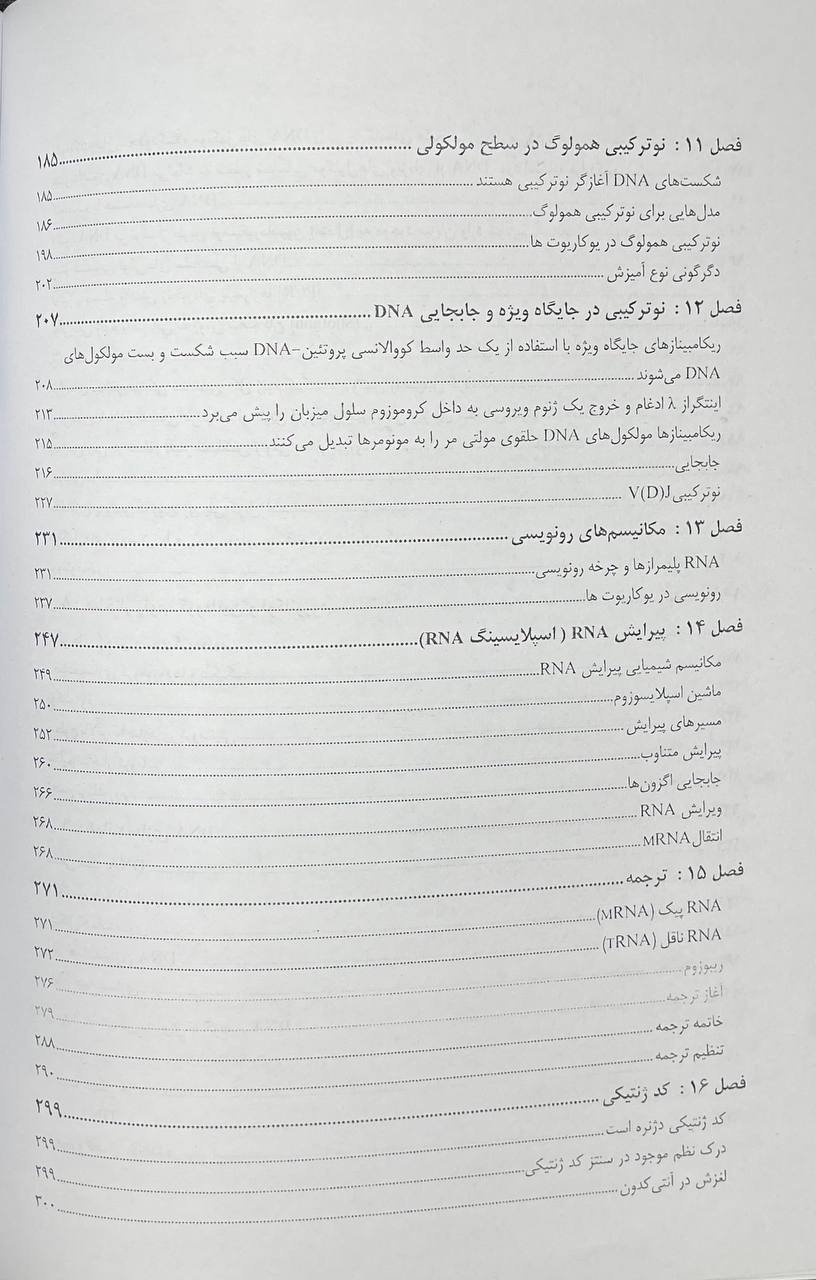 فصل ۱۱ : نوترکیبی همولوگ در سطح مولکولی ........ ۱۸۵
شکست‌های DNA آغازگر نوترکیبی هستند ........ ۱۸۵
مدل‌هایی برای نوترکیبی همولوگ ........ ۱۸۶
نوترکیبی همولوگ در یوکاریوت ها ........ ۱۹۸
دگرگونی نوع آمیزش ........ ۲۰۲
فصل ۱۲ : نوترکیبی در جایگاه ویژه و جابجایی DNA ........ ۲۰۷
ریکامبینازهای جایگاه ویژه با استفاده از یک حد واسط کووالانسی پروتئین-DNA سبب شکست و بست مولکول‌های
DNA می‌شوند ........ ۲۰۸
اینتگراز λ ادغام و خروج یک ژنوم ویروسی به داخل کروموزوم سلول میزبان را پیش می‌برد ........ ۲۱۳
ریکامبینازها مولکول‌های DNA حلقوی مولتی مر را به مونومرها تبدیل می‌کنند ........ ۲۱۵
جابجایی ........ ۲۱۶
نوترکیبی V(D)J ........ ۲۲۷
فصل ۱۳ : مکانیسم‌های رونویسی ........ ۲۳۱
RNA پلیمرازها و چرخه رونویسی ........ ۲۳۱
رونویسی در یوکاریوت ها ........ ۲۳۷
فصل ۱۴ : پیرایش RNA ( اسپلایسینگ RNA) ........ ۲۴۷
مکانیسم شیمیایی پیرایش RNA ........ ۲۴۹
ماشین اسپلایسوزوم ........ ۲۵۰
مسیرهای پیرایش ........ ۲۵۲
پیرایش متناوب ........ ۲۶۰
جابجایی اگزون‌ها ........ ۲۶۶
ویرایش RNA ........ ۲۶۸
انتقال MRNA ........ ۲۶۸
فصل ۱۵ : ترجمه ........ ۲۷۱
RNA پیک (MRNA) ........ ۲۷۱
RNA ناقل (TRNA) ........ ۲۷۲
ریبوزوم ........ ۲۷۶
آغاز ترجمه ........ ۲۷۹
خاتمه ترجمه ........ ۲۸۸
تنظیم ترجمه ........ ۲۹۰
فصل ۱۶ : کد ژنتیکی ........ ۲۹۹
کد ژنتیکی دژنره است ........ ۲۹۹
درک نظم موجود در سنتز کد ژنتیکی ........ ۲۹۹
لغزش در آنتی‌کدون ........ ۳۰۰